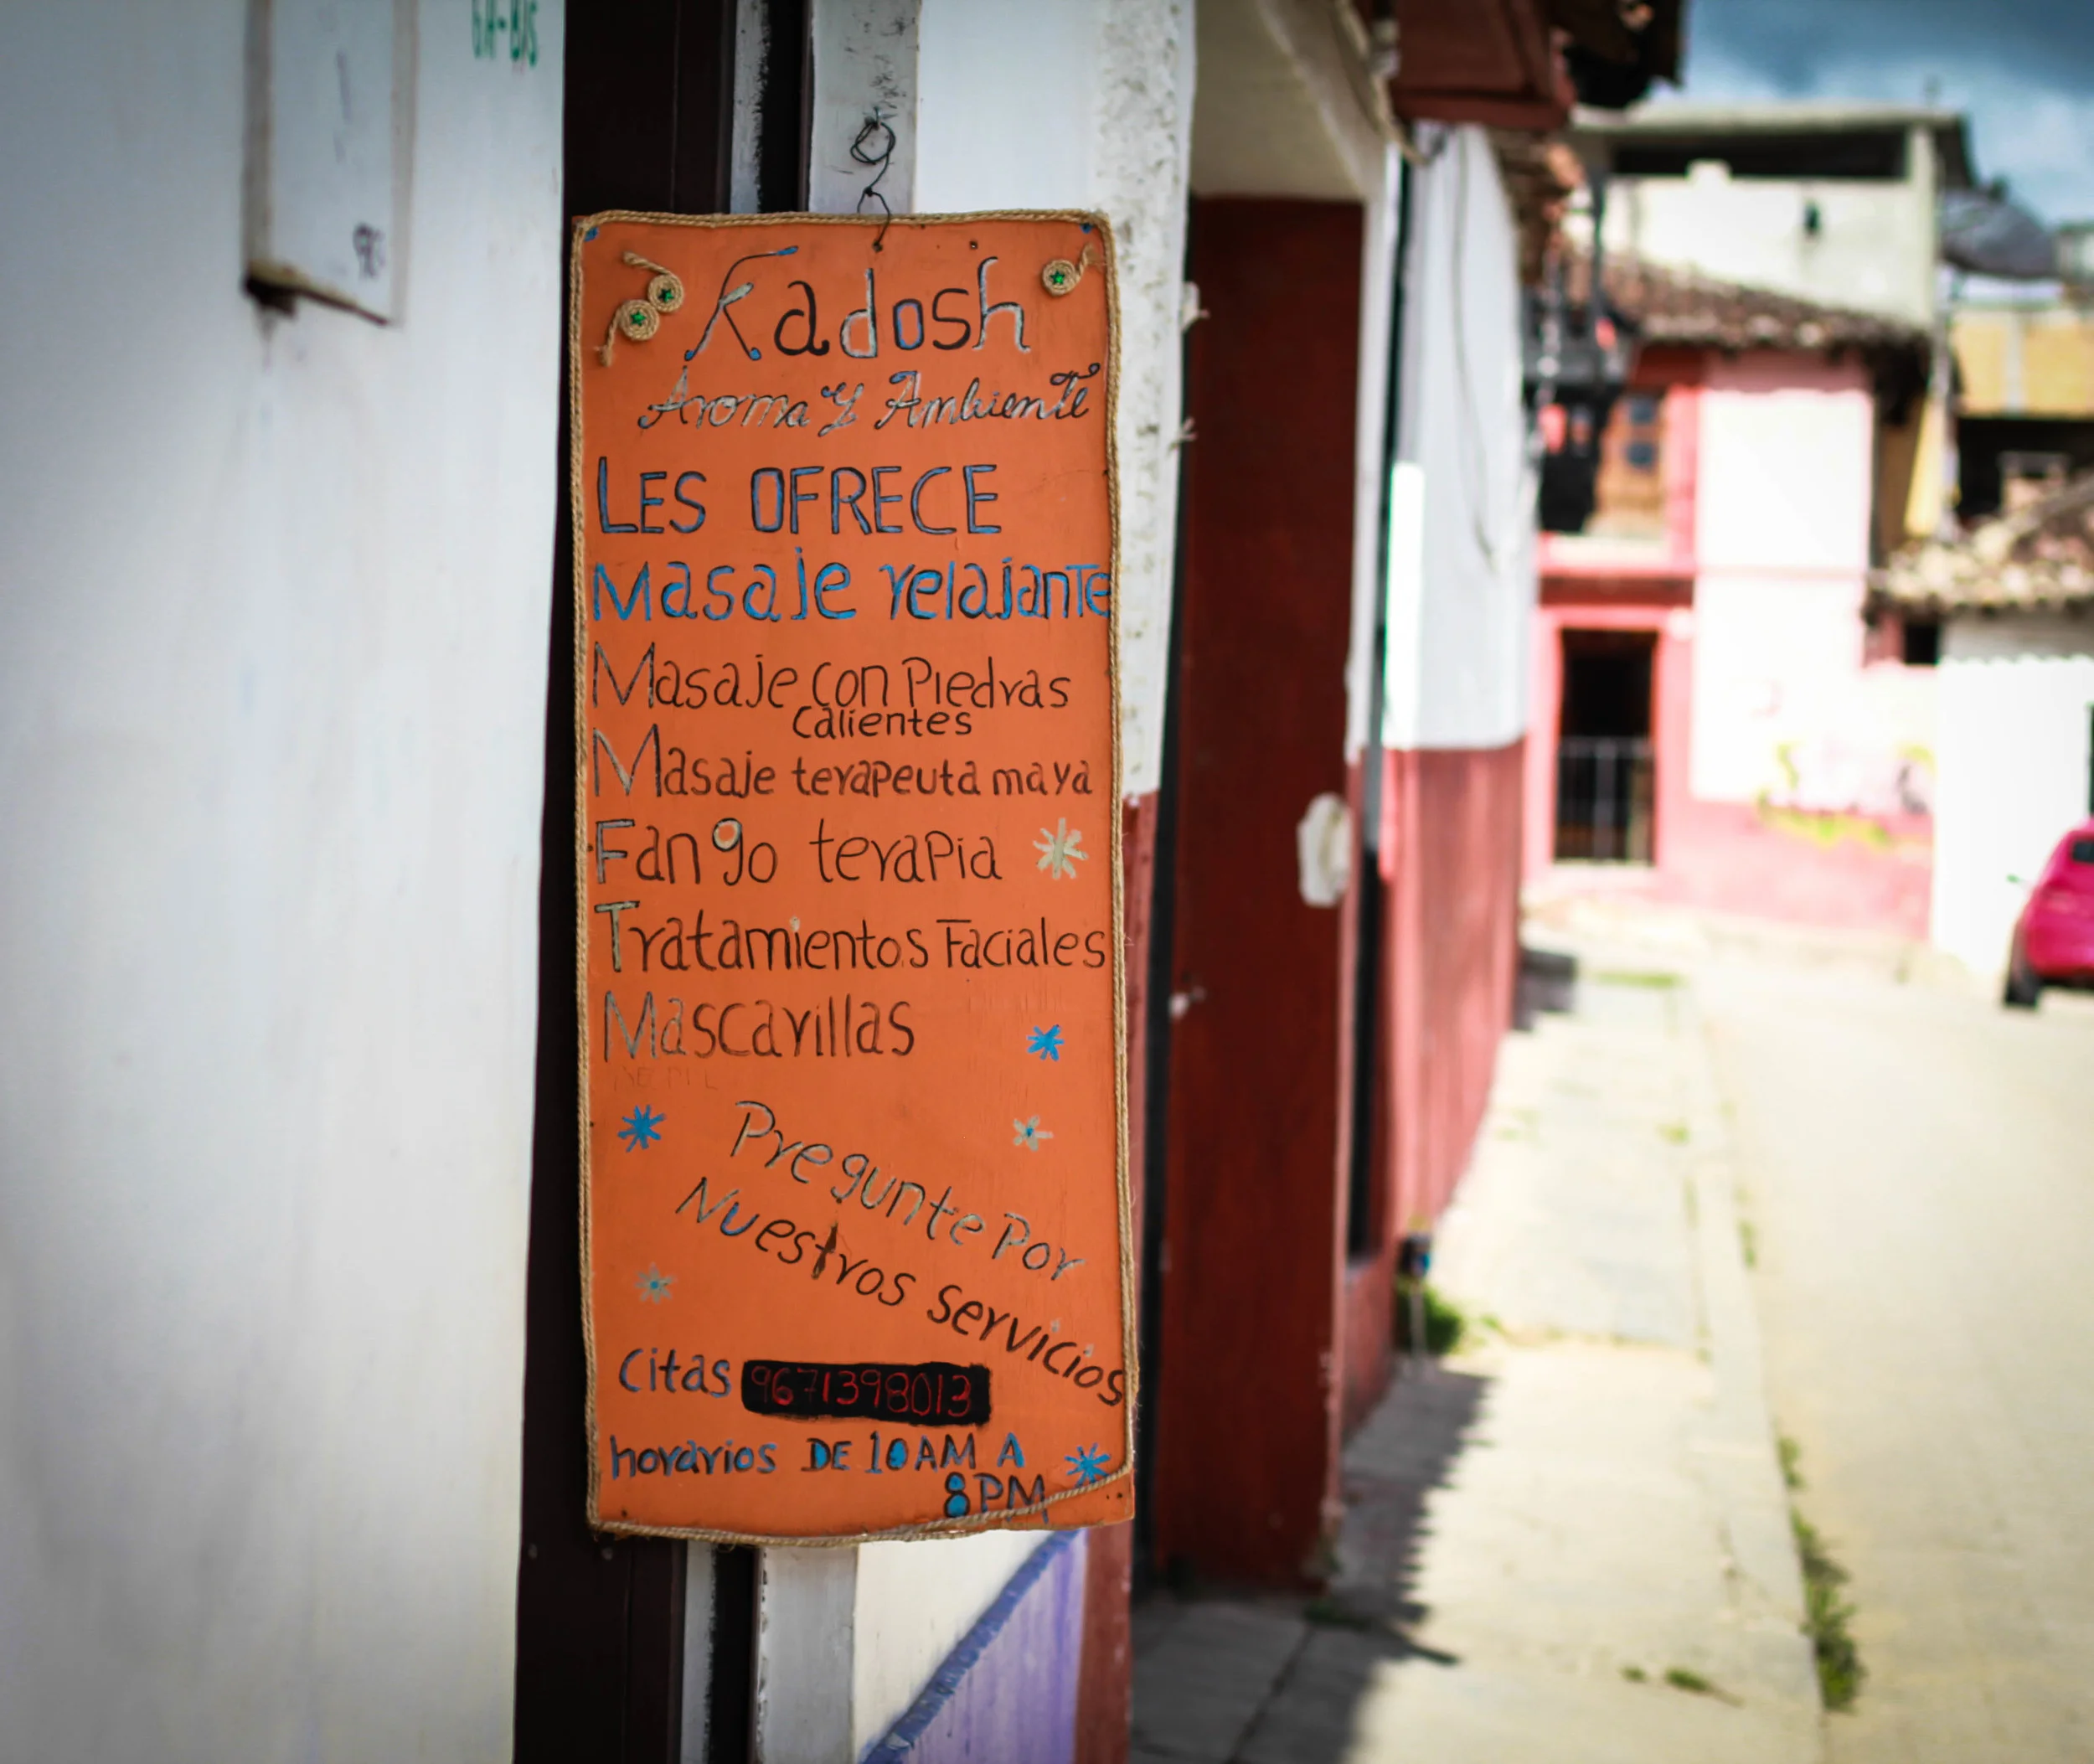 6A-BIS
Kadosh
Aroma y Ambiente
LES OFRECE
Masaje relajante
Masaje con Piedras
calientes
Masaje terapeuta maya
Fango terapia
Tratamientos Faciales
Mascarillas
Pregunte Por
Nuestros servicios
Citas 9671398013
horarios DE 10 AM A
8 PM